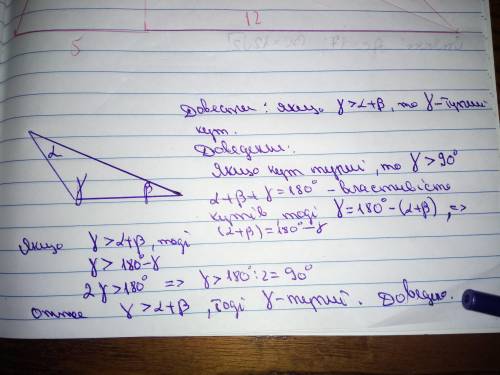 12
5
Довести: якщо γ > α+β, то γ – тупий
кут.
Доведення:
α
γ
β
Якщо кут тупий, то γ > 90°
α+β+γ = 180° – властивість
кутів, тоді γ = 180° – (α+β), =>
(α+β) = 180° – γ
Якщо γ > α+β, тоді
γ > 180° – γ
2γ > 180° => γ > 180° : 2 = 90°
Отже γ > α+β, тоді γ – тупий. Доведено.